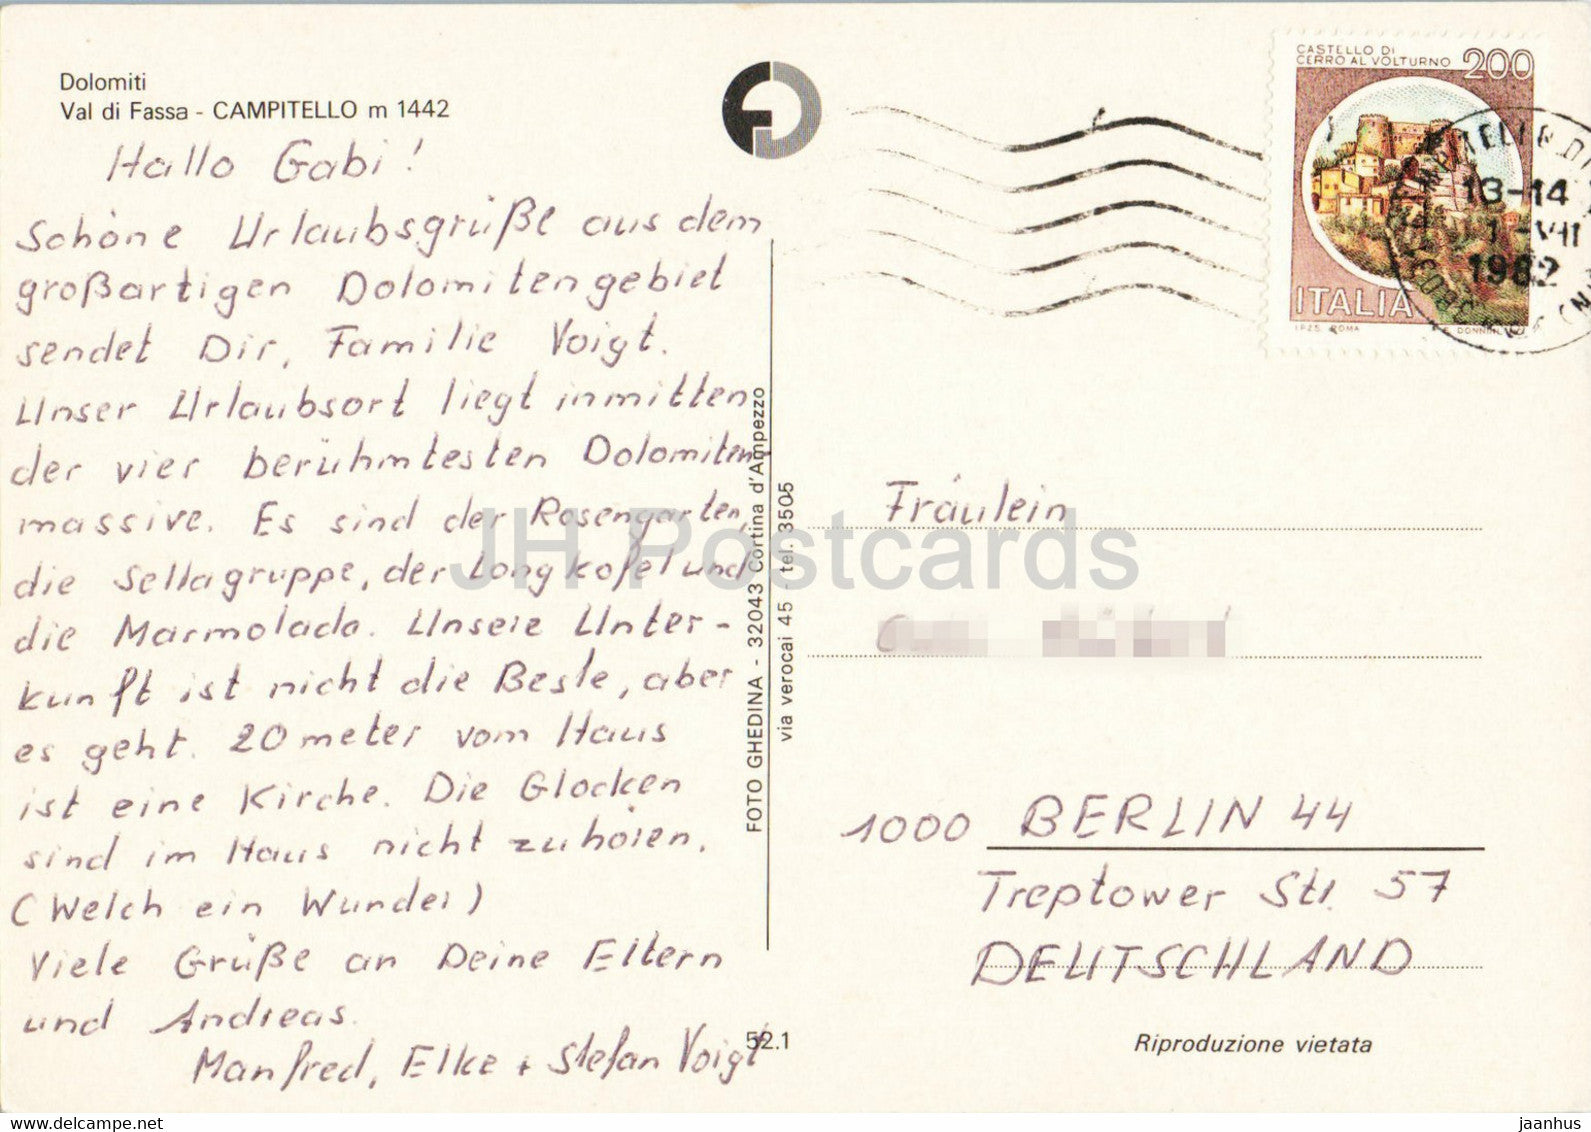 Dolomiti
Val di Fassa - CAMPITELLO m 1442
Hallo Gabi!
Schöne Urlaubsgrüße aus dem
großartigen Dolomitengebiet
sendet Dir, Familie Voigt.
Unser Urlaubsort liegt inmitten
der vier berühmtesten Dolomiten
massive. Es sind der Rosengarten,
die Sellagruppe, der Longkofel und
die Marmolada. Unsere Unter-
kunft ist nicht die Beste, aber
es geht. 20 meter vom Haus
ist eine Kirche. Die Glocken
sind im Haus nicht zuhören.
(Welch ein Wunder)
Viele Grüße an Deine Eltern
und Andreas.
Manfred, Elke + Stefan Voigt
52.1
FOTO GHEDINA - 32043 Cortina d'Ampezzo
via verocai 45 - tel. 3505
CASTELLO DI
CERRO AL VOLTURNO 200
ITALIA
I.P.Z.S. ROMA
13-14
1-VIII
1982
Fräulein
1000 BERLIN 44
Treptower Str. 57
DEUTSCHLAND
Riproduzione vietata
JH Postcards
delcampe.net
jaanhus